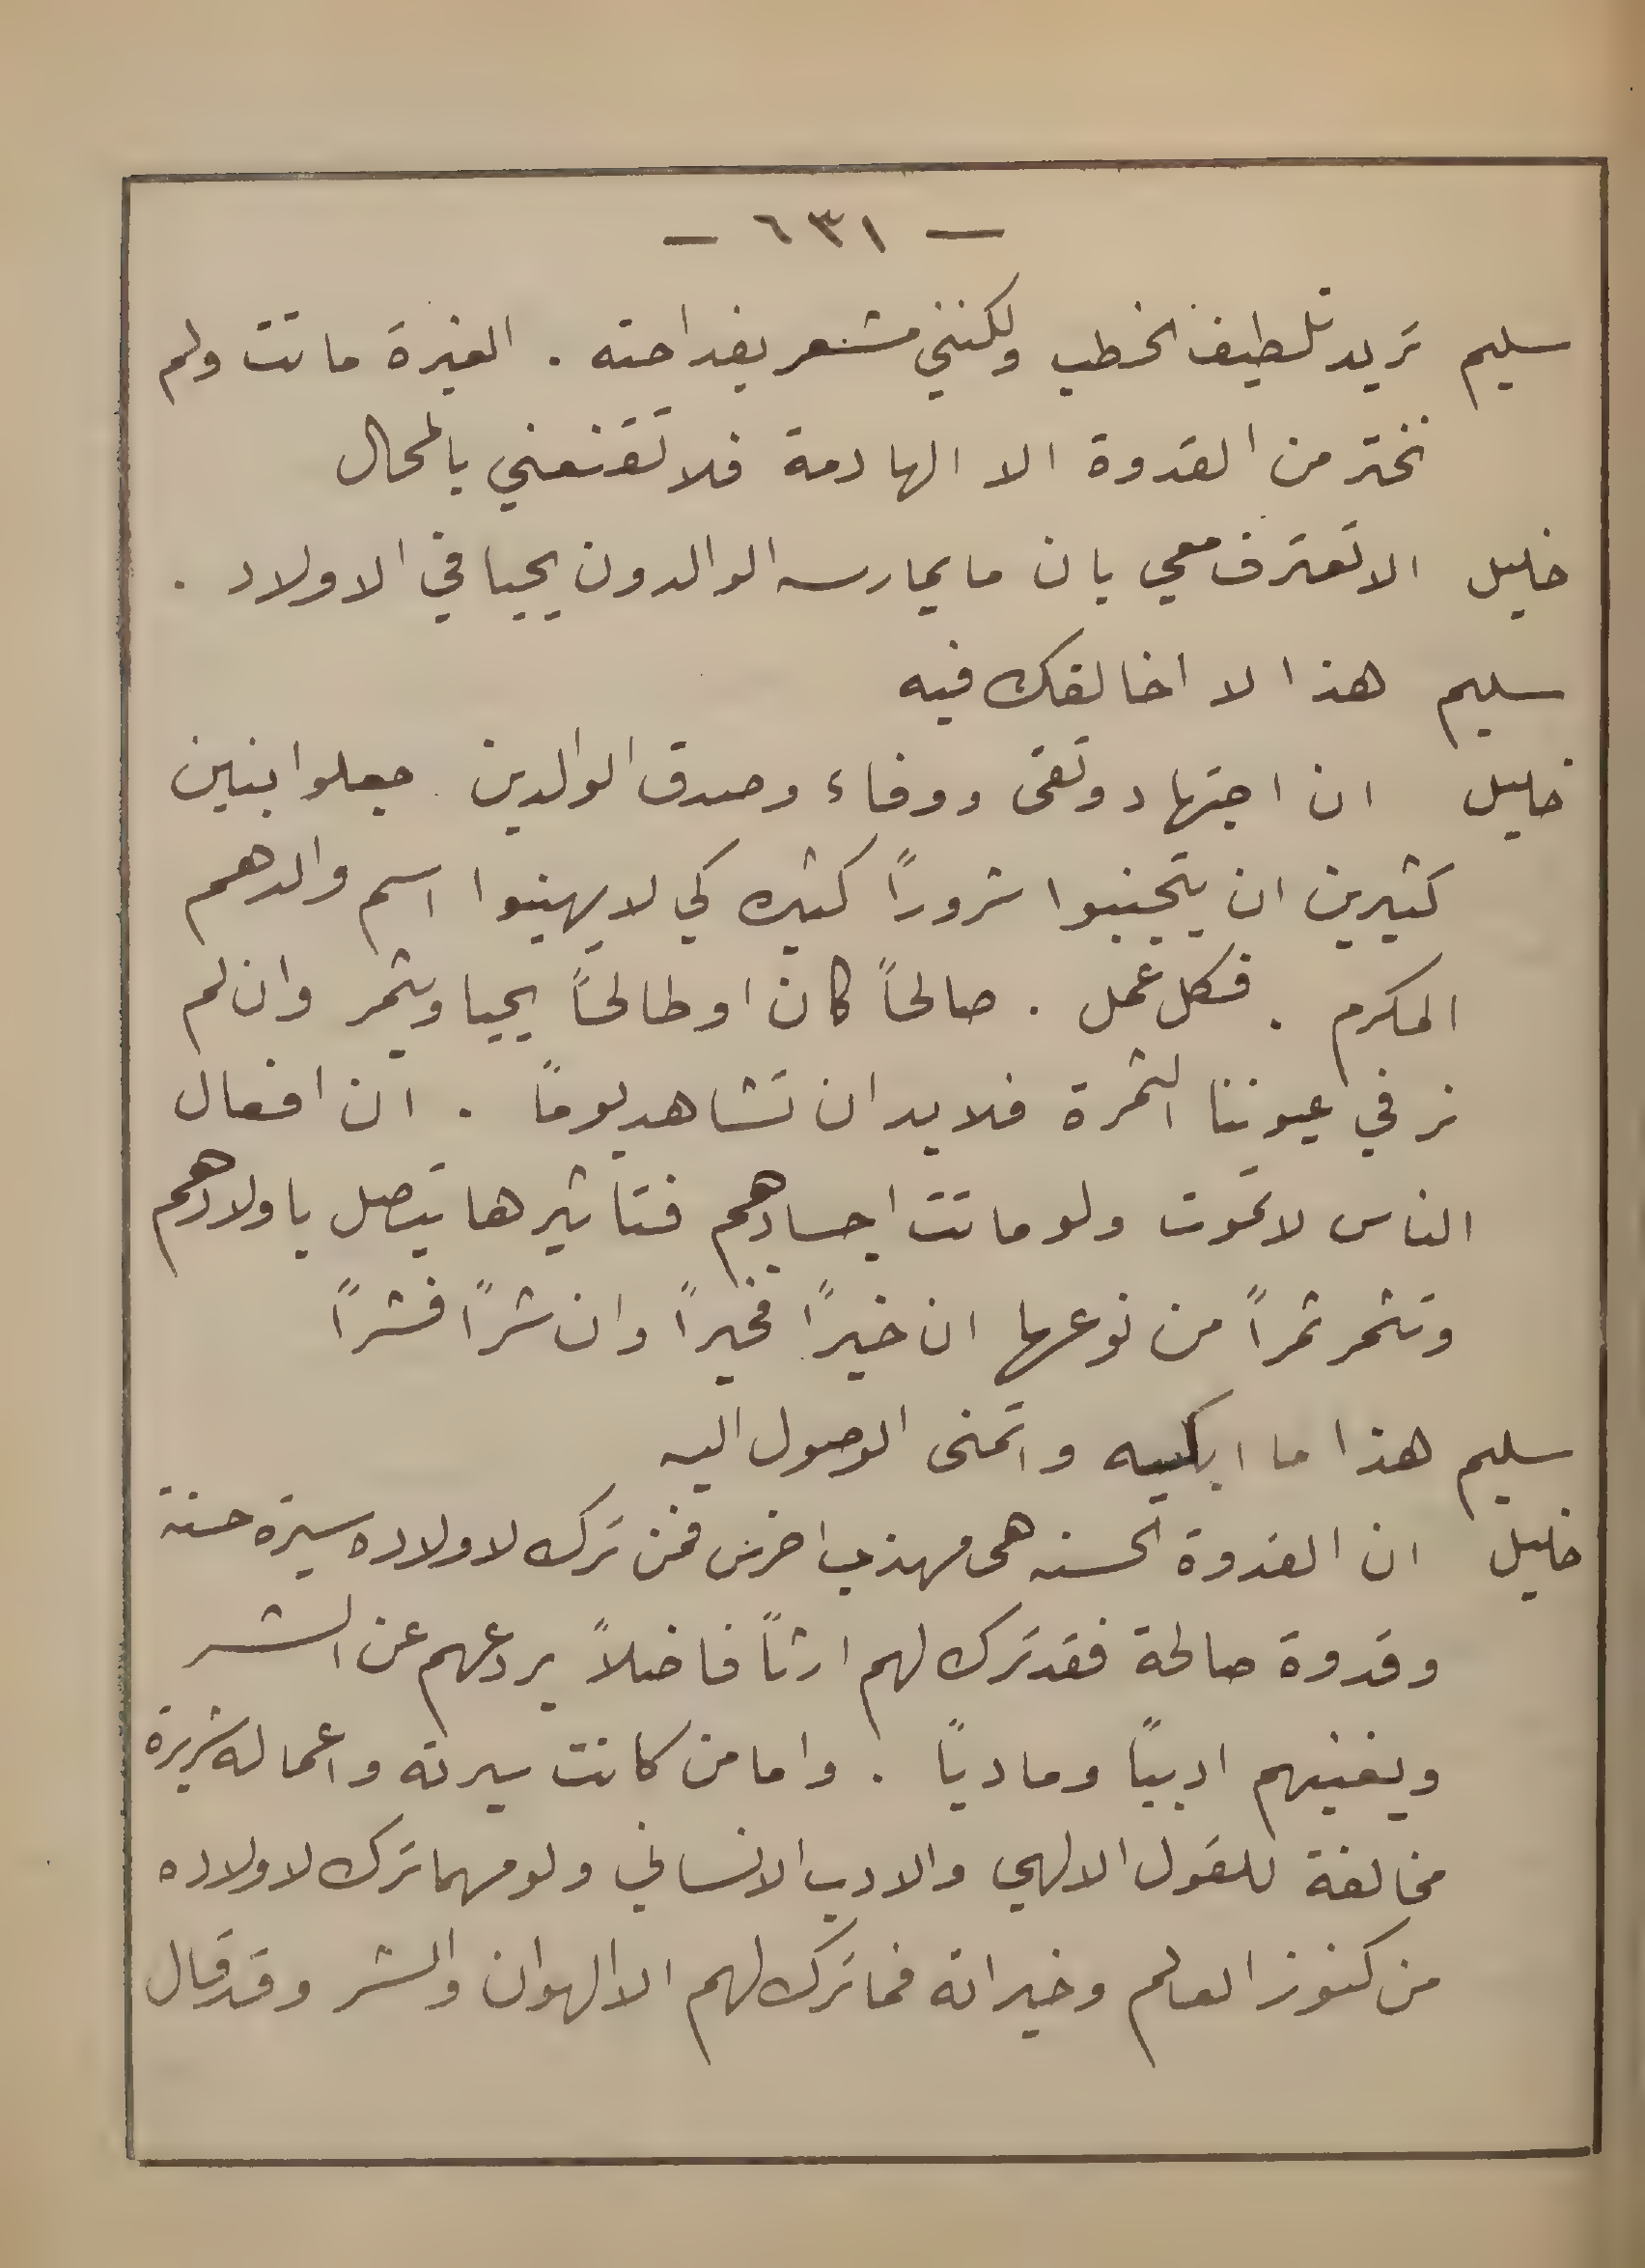 — ٦٣١ —
سليم تريد تلطيف الخطب ولكنني مشعر بفداحته . الغيرة ماتت ولم
نختر من القدوة الا الهادمة فلا تقنعني بالمحال
خليل الا تعترف معي بان ما يمارسه الوالدون يحيا في الاولاد .
سليم هذا لا اخالفك فيه
خليل ان اجتهاد وتقى ووفاء وصدق الوالدين جعلوا بنين
كثيرين ان يتجنبوا شروراً كثيره كي لا يهينوا اسم والدهم
المكرم . فكل عمل . صالحاً كان او طالحاً يحيا ويثمر وان لم
نر في عيوننا الثمرة فلا بد ان تشاهد يوماً . ان افعال
الناس لا تموت ولو ماتت اجسادهم فتاثيرها يتصل باولادهم
وتثمر ثمراً من نوعها ان خيراً فخيراً وان شراً فشراً
سليم هذا ما ابكيه واتمنى الوصول اليه
خليل ان القدوة الحسنه هى مهذب اخرس فمن ترك لاولاده سيرة حسنة
وقدوة صالحة فقد ترك لهم ارثاً فاضلاً يردعهم عن الشر
ويغنيهم ادبياً ومادياً . واما من كانت سيرته واعماله شريرة
مخالفة للقول الالهي والادب الانساني ولو مهما ترك لاولاده
من كنوز العالم وخيراته فما ترك لهم الا الهوان والشر وقد قال